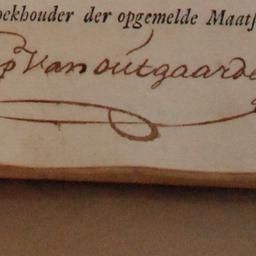 oekhouder der opgemelde Maatſ
p Van outgaarde